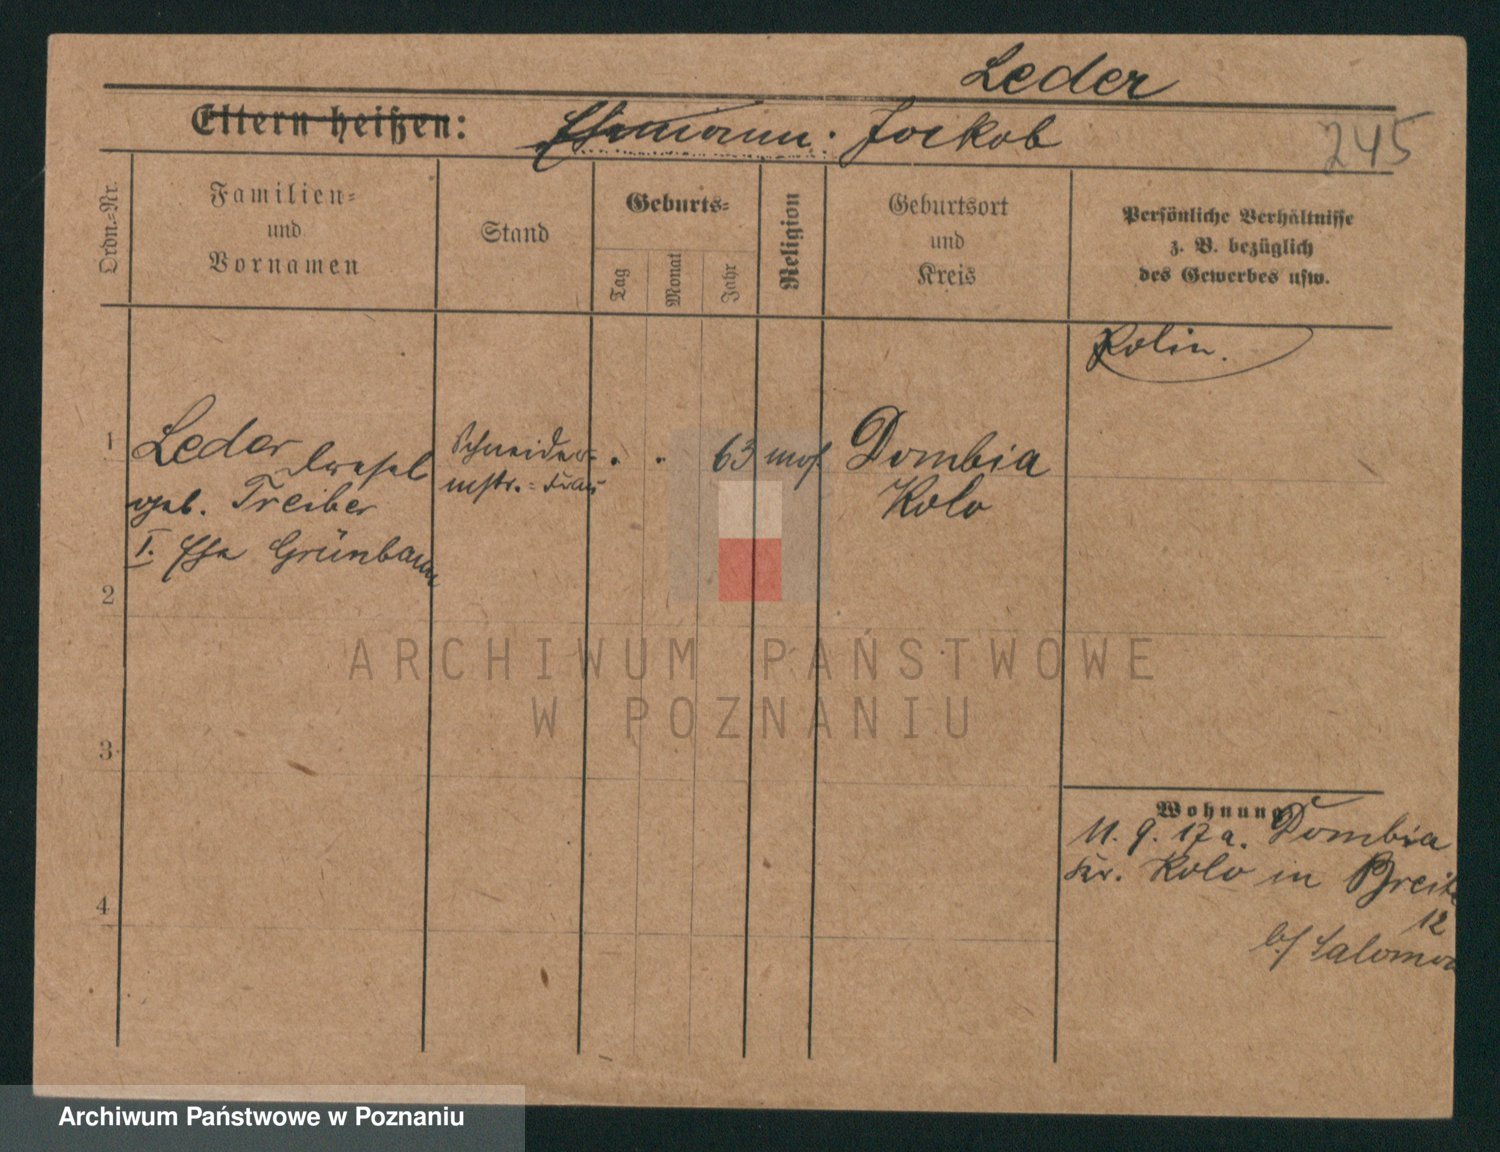 Leder
Eltern heißen: Ehemann: Jackob
245
Ordn.=Nr.
Familien=
und
Vornamen
Stand
Geburts=
Tag
Monat
Jahr
Religion
Geburtsort
und
Kreis
Persönliche Verhältnisse
z. B. bezüglich
des Gewerbes usw.
Kolin.
1
Leder
geb. Treiber
I. Ehe Grünbaum
Schneider=
mstr.=Frau
. . 63 mos.
Dombia
Kolo
2
3
4
Wohnung
11. 9. 17 a. Dombia
Kr. Kolo in Breite
12
b/ Salomon
ARCHIWUM PAŃSTWOWE
W POZNANIU
Archiwum Państwowe w Poznaniu